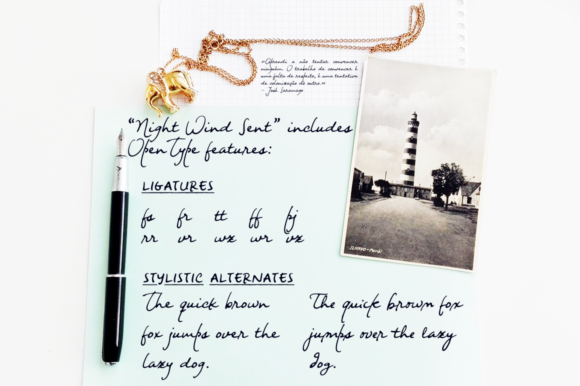 «Aprendi a não tentar convencer
ninguém. O trabalho de convencer é
uma falta de respeito, é uma tentativa
de colonização do outro.»
- José Saramago
"Night Wind Sent" includes
OpenType features:
LIGATURES
fs fr tt ff
rr vr wx wr vx
STYLISTIC ALTERNATES
The quick brown
fox jumps over the
lazy dog.
The quick brown fox
jumps over the lazy
dog.